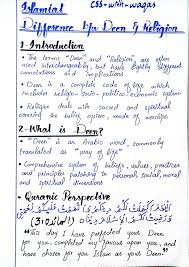 Islamiat
CSS-with-waqas
Difference b/w Deen & Religion
1-Introduction
• The terms "Deen" and "Religion" are often
used interchangeably, but have slightly different
connotations and implications
• Deen is a complete code of life which
includes religio-socio-political-economic system
• Religion deals with sacred and spiritual
covering the belief system, mode of worship
2-What is Deen?
• Deen is an Arabic word, commonly
translated as "way of life"
• Comprehensive system of beliefs, values, practices
and principles pertaining to personal, social, moral
and spiritual dimensions
• Quranic Perspective
الْيَوْمَ أَكْمَلْتُ لَكُمْ دِينَكُمْ وَأَتْمَمْتُ عَلَيْكُمْ نِعْمَتِي
وَرَضِيتُ لَكُمُ الْإِسْلَامَ دِينًا
"This day I have perfected your Deen
for you, completed my favour upon you, and
have chosen for you Islam as your Deen"